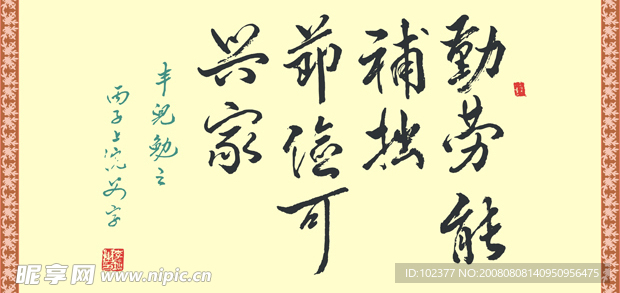 勤劳能
补拙
节俭可
兴家
丰儿勉之
丙子上浣 字
昵享网 www.nipic.cn
ID:102377 NO:20080808140950956475